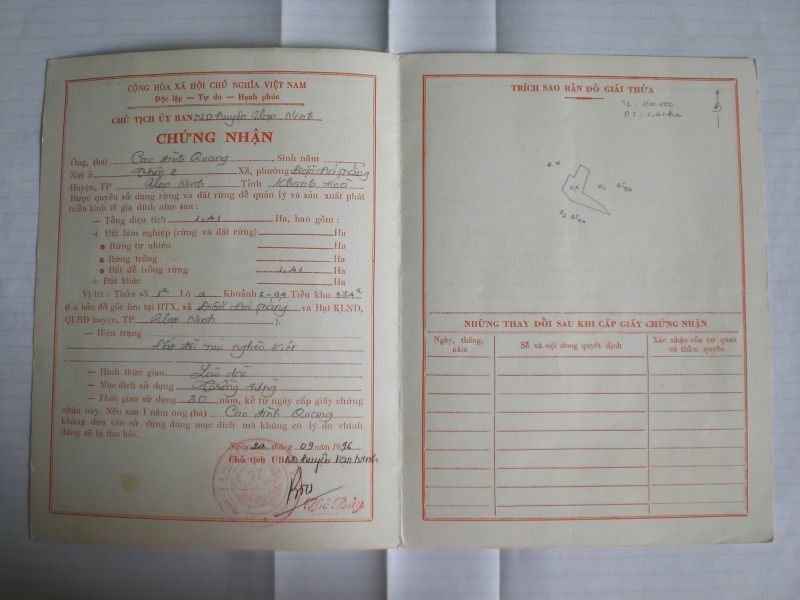 CỘNG HÒA XÃ HỘI CHỦ NGHĨA VIỆT NAM
Độc lập — Tự do — Hạnh phúc
CHỦ TỊCH ỦY BAN ND huyện Vạn Ninh
CHỨNG NHẬN
Ông, (bà) Cao Đình Quang Sinh năm
Nơi ở Thôn 2 Xã, phường
Huyện, TP Vạn Ninh Tỉnh Khánh Hoà
Được quyền sử dụng rừng và đất rừng để quản lý và sản xuất phát
triển kinh tế gia đình như sau :
— Tổng diện tích 1,41 Ha, bao gồm :
+ Đất lâm nghiệp (rừng và đất rừng) Ha
● Rừng tự nhiên Ha
● Rừng trồng Ha
● Đất để trồng rừng 1,41 Ha
+ Đất khác Ha
Vị trí : Thửa số Lô a Khoảnh Tiểu khu
(Có bản đồ gốc lưu tại HTX, xã và Hạt KLND,
QLRĐ huyện, TP Vạn Ninh ).
— Hiện trạng
Đất đồi núi nghèo kiệt
— Hình thức giao Lâu dài
— Mục đích sử dụng Trồng rừng
— Thời gian sử dụng 30 năm, kể từ ngày cấp giấy chứng
nhận này. Nếu sau 1 năm ông (bà) Cao Đình Quang
không đưa vào sử dụng đúng mục đích mà không có lý do chính
đáng sẽ bị thu hồi.
Ngày 24 tháng 09 năm 1996
Chủ tịch UBND huyện Vạn Ninh
TRÍCH SAO BẢN ĐỒ GIẢI THỬA
DT : 1,41 ha
B
NHỮNG THAY ĐỔI SAU KHI CẤP GIẤY CHỨNG NHẬN
Ngày, tháng, năm
Số và nội dung quyết định
Xác nhận của cơ quan có thẩm quyền